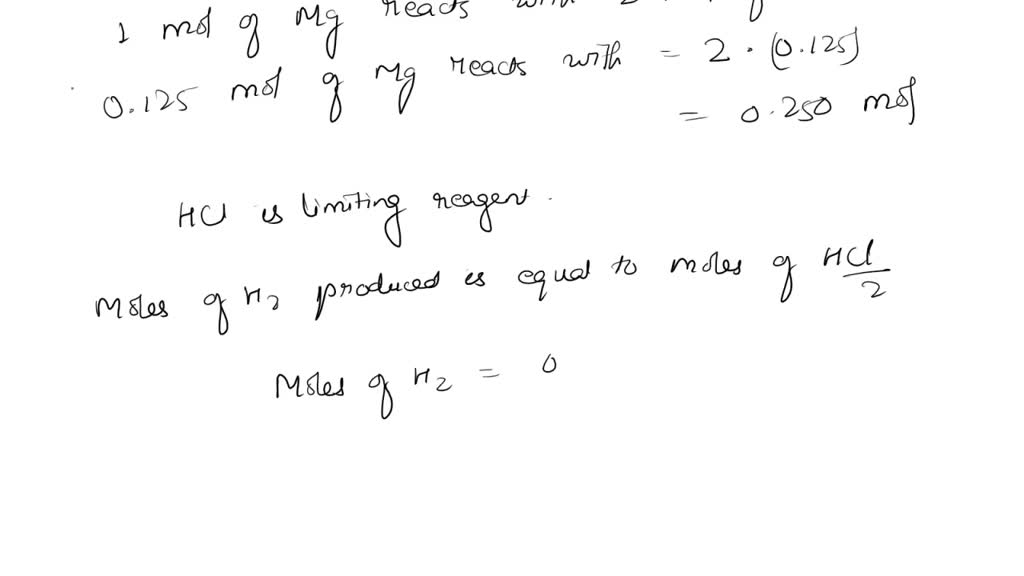 1 mol of Mg reacts with 2
0.125 mol of Mg reacts with = 2 · (0.125)
= 0.250 mol
HCl is limiting reagent.
Moles of H2 produced is equal to moles of HCl/2
Moles of H2 = 0